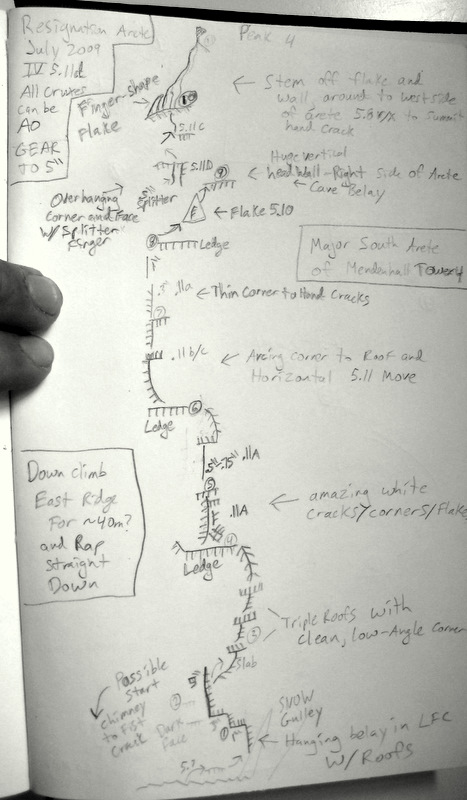 Resignation Arete
July 2009
IV 5.11d
All Cruxes
can be
A0
GEAR
TO 5"
Peak 4
Finger-shape
Flake
10
Stem off flake and
wall, around to west side
of arete 5.8 r/x to summit
hand crack
5.11c
5.11D
Huge vertical
headwall-Right side of Arete
Cave Belay
9
Overhanging
Corner and Face
w/ Splitter
Finger
.5"
Splitter
F
Flake 5.10
8
Ledge
Major South Arete
of Mendenhall Tower 4
1"
.11a
Thin Corner to Hand Cracks
7
.11 b/c
Arcing corner to Roof and
Horizontal 5.11 Move
6
Ledge
.5"-.75" .11A
5
.11A
amazing white
cracks/corners/Flake
4
Ledge
Down climb
East Ridge
For ~40m?
and Rap
Straight
Down
Triple Roofs with
clean, low-Angle Corner
3
Slab
Possible
Start
chimney
to Fist
Crack
2
Dark
Face
5"
1
1"
Snow
Gulley
Hanging belay in LFC
w/ Roofs
5.7